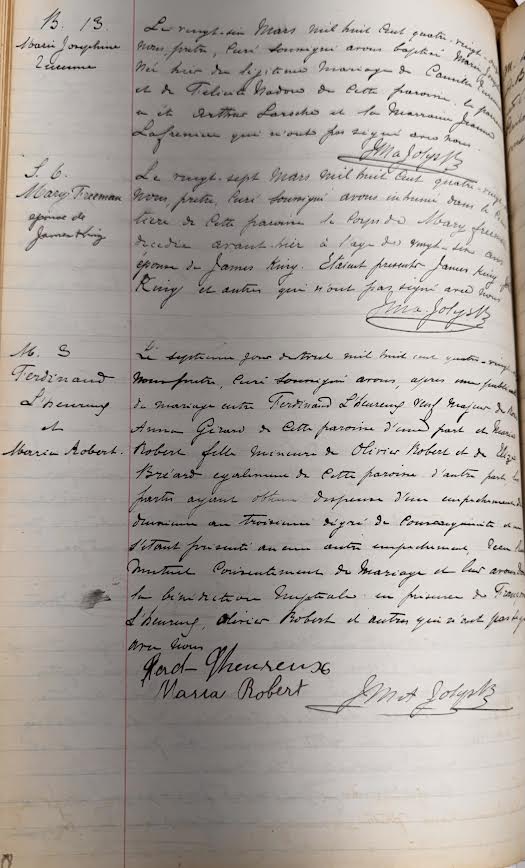 B. 13.
Marie Josephine
Le vingt-six Mars mil huit cent quatre-vingt
nous, prêtre, Curé soussigné avons baptisé Marie
Née hier du légitime Mariage de Camille
et de Félicité Nadeau de cette paroisse. Le
a été Arthur Laroche et la Marraine Jeanne
Lafrenière qui n'ont pas signé avec nous.
JMA Jolys Ptr
S. 6.
Mary Freeman
épouse de
James King
Le vingt-sept Mars mil huit cent quatre-vingt
Nous, prêtre, Curé soussigné avons inhumé dans le
tière de cette paroisse le corps de Mary Freeman
décédée avant-hier à l'age de vingt-six ans
épouse de James King. Etaient présents James King
King et autres qui n'ont pas signé avec nous
JMA Jolys Ptr
M. 3
Ferdinand
L'heureux
et
Maria Robert.
Le septième jour d'avril mil huit cent quatre-vingt
Nous prêtre, Curé soussigné avons, après une
de mariage entre Ferdinand L'heureux Veuf Majeur de
Anna Girard de Cette paroisse d'une part et Maria
Robert fille mineure de Olivier Robert et de
Bréard egalement de Cette paroisse d'autre part
parties ayant obtenu dispense d'un empêchement
au troisieme dégré de Consanguinité et
s'étant présenté aucun autre empêchement,
Mutuel Consentement de Mariage et leur avons
la bénédiction Nuptiale en présence de
L'heureux, Olivier Robert et autres qui n'ont pas
avec nous
Ferd Lheureux
Maria Robert
JMA Jolys Ptr